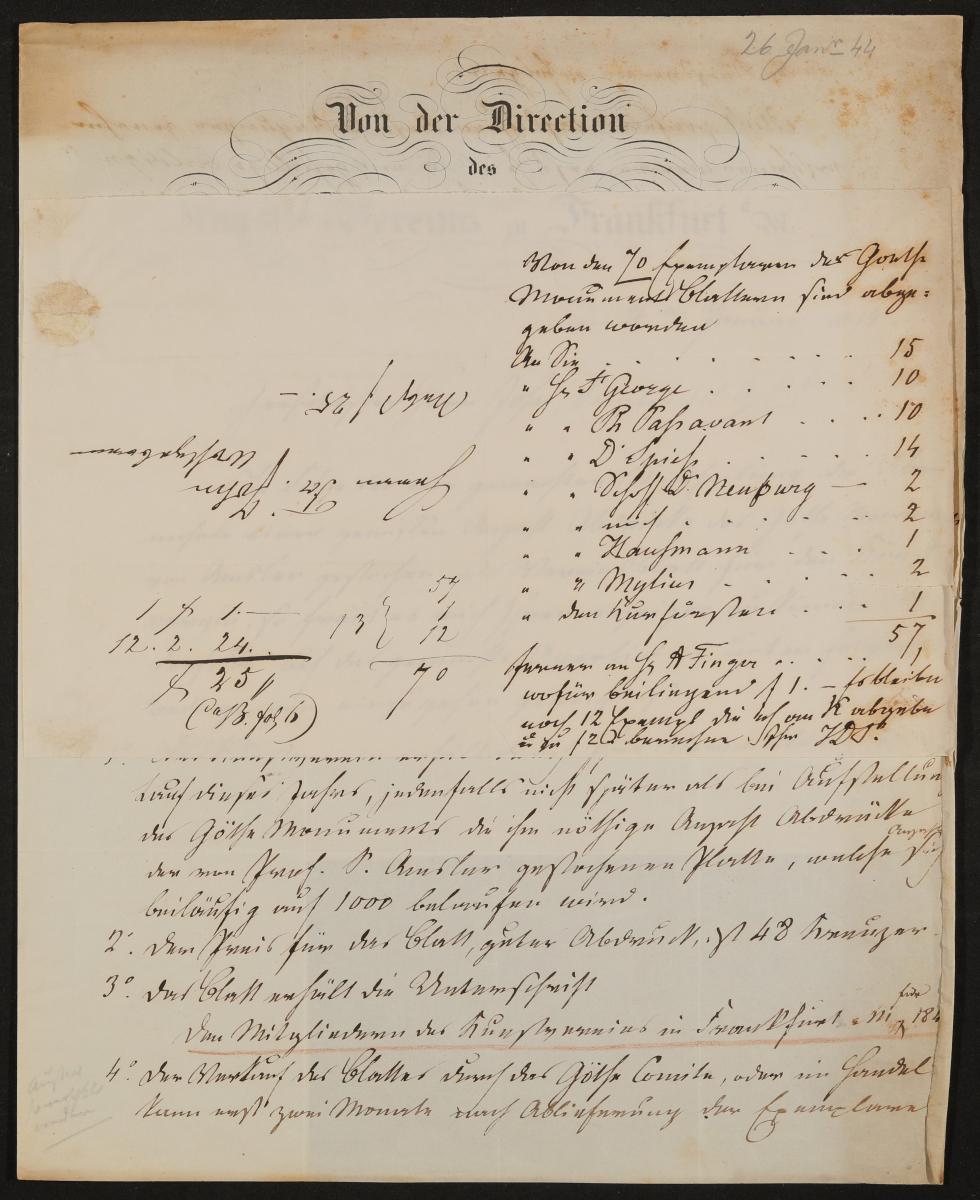 26 Janr 44
Von der Direction
des
Von den 70 Exemplaren des Goethe
Monuments Blattern sind abge=
geben worden
An Sie . . . . . . 15
" Hr St George . . . . 10
" " Ph Passavant . . . 10
" " Dr Spiess . . . . . 14
" " Schöff Dr Neuburg — 2
" " mich . . . . . . 2
" " Kaufmann . . . 1
" " Mylius . . . . . 2
" den Kurfürsten . . . 1
57
ferner an Hr A Finger . . . . 1
wofür beiliegend f 1. — Es bleiben
noch 12 Exempl die ich an K abgebe
u zu f 2 berechne Ihr
f 25. –
Herrn Dr.
57
13 { 1
12
70
1 f 1. —
12. 2. 24. .
f 25 "
(Cass. fol 6)
Lauf dieses Jahrs, jedenfalls nicht später als bei Aufstellung
des Göthe Monuments die ihm nöthige Anzahl Abdrücke
der von Prof. S. Amsler gestochenen Platte, welche Anzahl sich
beiläufig auf 1000 belaufen wird.
2°. Der Preis für das Blatt, guter Abdruck, ist 48 Kreuzer.
3°. Das Blatt erhält die Unterschrift
Den Mitgliedern des Kunstvereins in Frankfurt a. M. für 184
4°. Der Verkauf des Blattes durch das Göthe Comite, oder im Handel
kann erst zwei Monate nach Ablieferung der Exemplare